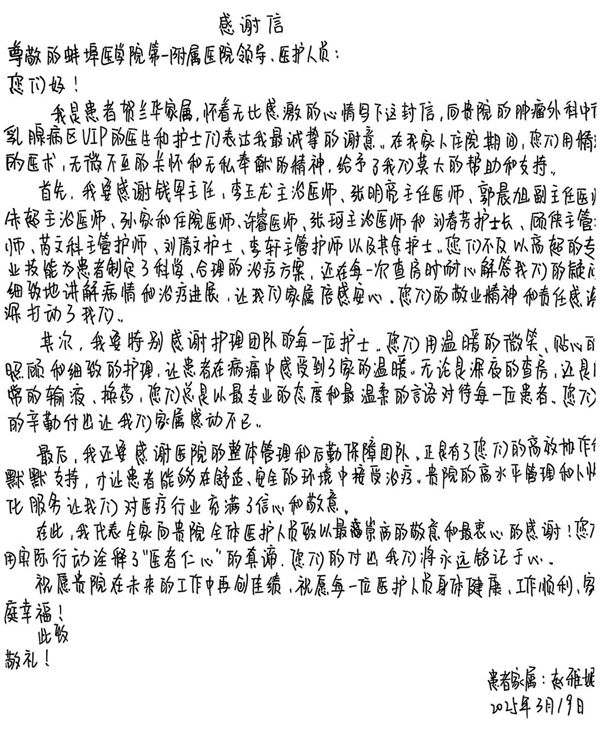 感谢信
尊敬的蚌埠医学院第一附属医院领导、医护人员：
您们好！
我是患者贺兰华家属，怀着无比感激的心情写下这封信，向贵院的肿瘤外科中
乳腺病区VIP的医生和护士们表达我最诚挚的谢意。在我家人住院期间，您们用精
的医术，无微不至的关怀和无私奉献的精神，给予了我们莫大的帮助和支持。
首先，我要感谢钱军主任、李玉龙主治医师、张明亮主任医师、郭晨旭副主任医
朱超主治医师、孙家和住院医师、许睿医师、张珂主治医师和刘春芳护士长、顾侠主管
师、芮文科主管护师、刘倩文护士、李轩主管护师以及其余护士。您们不仅以高超的专
业技能为患者制定了科学、合理的治疗方案，还在每一次查房时耐心解答我们的疑问
细致地讲解病情和治疗进展，让我们家属倍感安心。您们的敬业精神和责任感深
深打动了我们。
其次，我要特别感谢护理团队的每一位护士。您们用温暖的微笑、贴心的
照顾和细致的护理，让患者在病痛中感受到了家的温暖。无论是深夜的查房，还是
常的输液、换药，您们总是以最专业的态度和最温柔的言语对待每一位患者。您们
的辛勤付出让我们家属感动不已。
最后，我还要感谢医院的整体管理和后勤保障团队，正是有了您们的高效协作
默默支持，才让患者能够在舒适、安全的环境中接受治疗。贵院的高水平管理和人性
化服务让我们对医疗行业充满了信心和敬意。
在此，我代表全家向贵院全体医护人员致以最崇高的敬意和最衷心的感谢！您们
用实际行动诠释了“医者仁心”的真谛，您们的付出我们将永远铭记于心。
祝愿贵院在未来的工作中再创佳绩，祝愿每一位医护人员身体健康、工作顺利、家
庭幸福！
此致
敬礼！
患者家属：赵雅娓
2025年3月19日